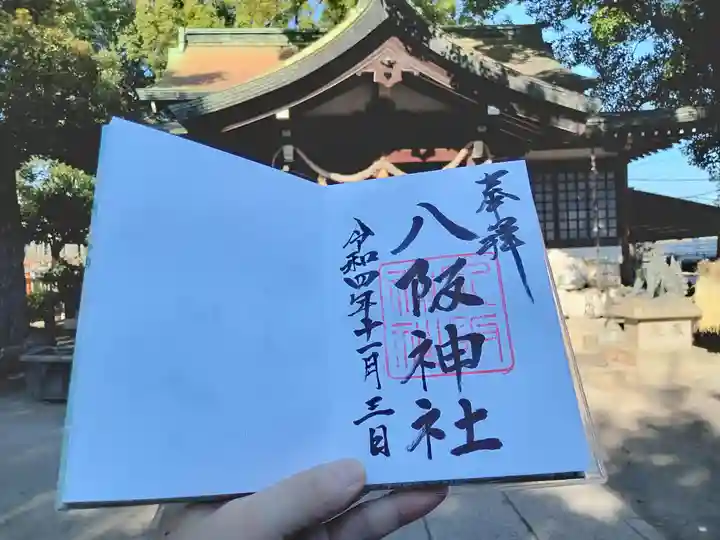 奉拝
八阪神社
令和四年十一月三日